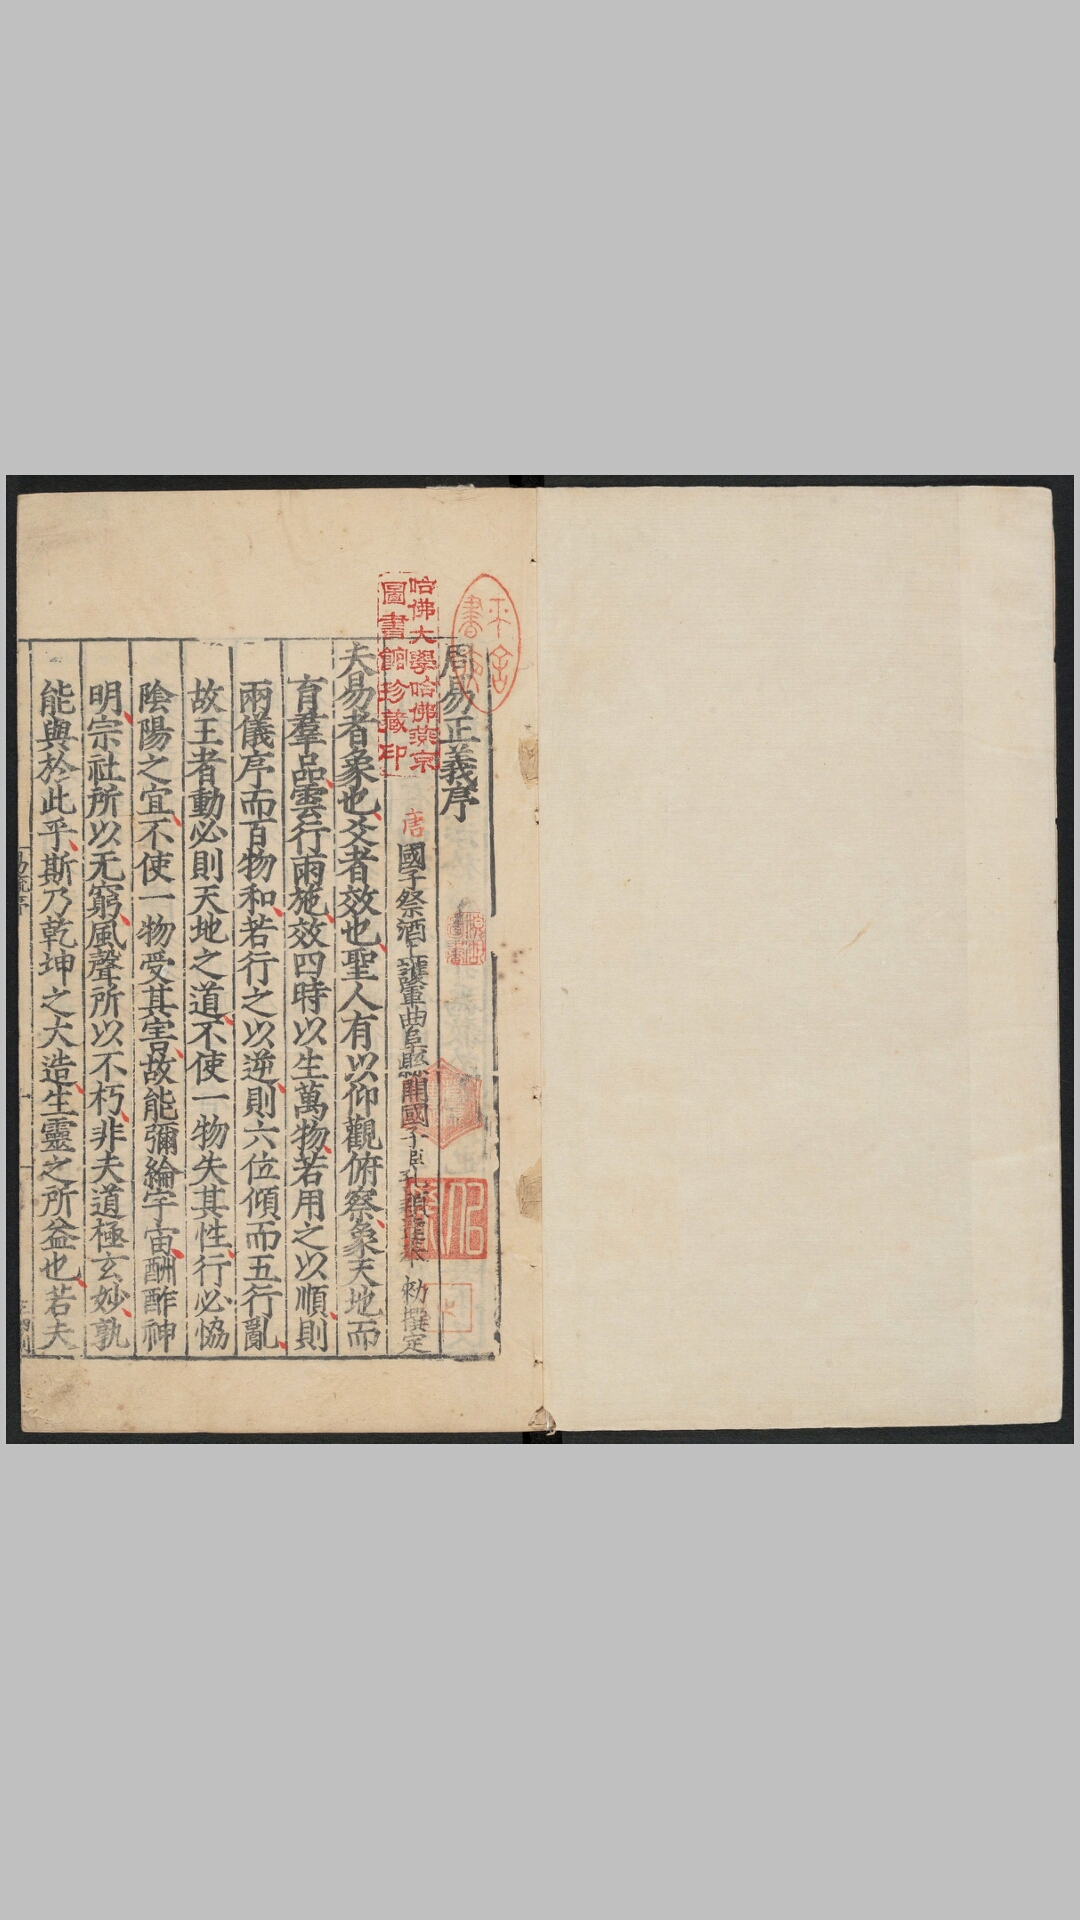 周易正義序
唐國子祭酒上護軍曲阜縣開國子臣孔穎達奉勑撰定
夫易者象也爻者效也聖人有以仰觀俯察象天地而
育羣品雲行雨施效四時以生萬物若用之以順則
兩儀序而百物和若行之以逆則六位傾而五行亂
故王者動必則天地之道不使一物失其性行必恊
陰陽之宜不使一物受其害故能彌綸宇宙酬酢神
明宗社所以无窮風聲所以不朽非夫道極玄妙孰
能與於此乎斯乃乾坤之大造生靈之所益也若夫
哈佛大學哈佛燕京
圖書館珍藏印